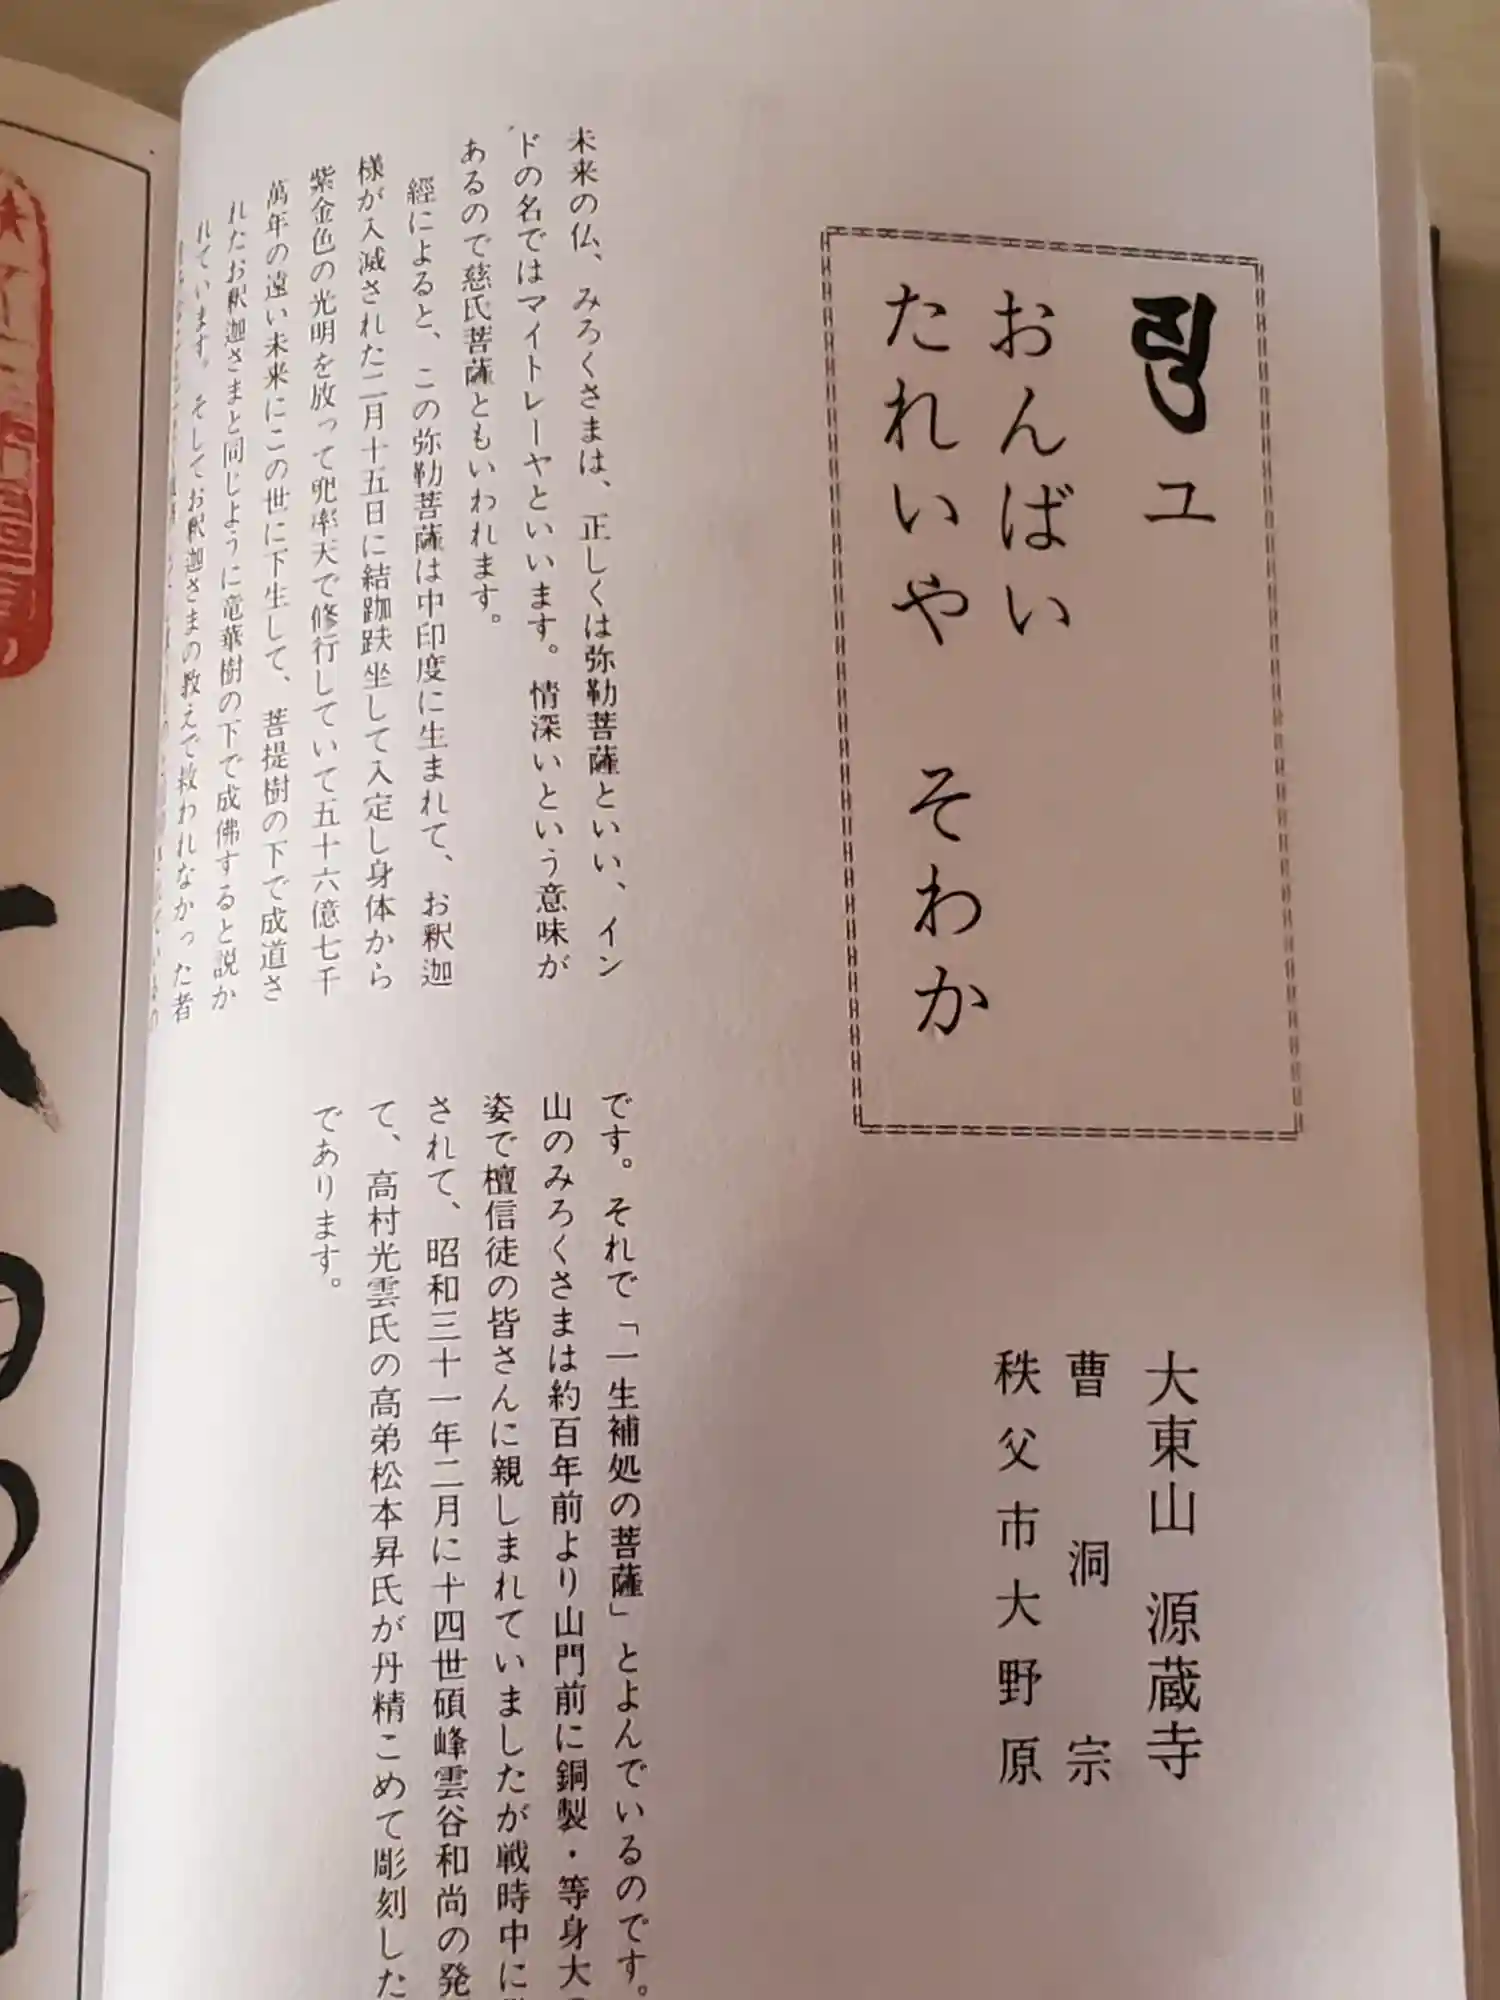 ユ
おんばい
たれいや そわか
大東山 源蔵寺
曹洞宗
秩父市大野原
未来の仏、みろくさまは、正しくは弥勒菩薩といい、イン
ドの名ではマイトレーヤといいます。情深いという意味が
あるので慈氏菩薩ともいわれます。
經によると、この弥勒菩薩は中印度に生まれて、お釈迦
様が入滅された二月十五日に結跏趺坐して入定し身体から
紫金色の光明を放って兜率天で修行していて五十六億七千
萬年の遠い未来にこの世に下生して、菩提樹の下で成道さ
れたお釈迦さまと同じように竜華樹の下で成佛すると説か
れています。そしてお釈迦さまの教えで救われなかった者
です。それで「一生補処の菩薩」とよんでいるのです。
山のみろくさまは約百年前より山門前に銅製・等身大
姿で檀信徒の皆さんに親しまれていましたが戦時中に
されて、昭和三十一年二月に十四世碩峰雲谷和尚の発
て、高村光雲氏の高弟松本昇氏が丹精こめて彫刻した
であります。